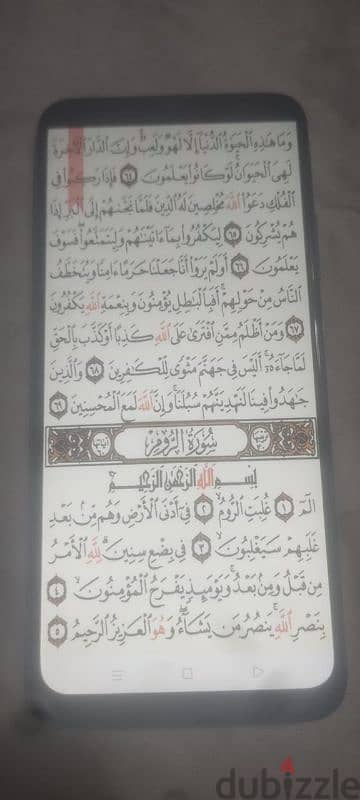 وَمَا هَٰذِهِ الْحَيَوٰةُ الدُّنْيَا إِلَّا لَهْوٌ وَلَعِبٌ وَإِنَّ الدَّارَ الْآخِرَةَ
لَهِيَ الْحَيَوَانُ لَوْ كَانُوا يَعْلَمُونَ ٦٤ فَإِذَا رَكِبُوا فِي
الْفُلْكِ دَعَوُا اللَّهَ مُخْلِصِينَ لَهُ الدِّينَ فَلَمَّا نَجَّىٰهُمْ إِلَى الْبَرِّ إِذَا
هُمْ يُشْرِكُونَ ٦٥ لِيَكْفُرُوا بِمَا ءَاتَيْنَٰهُمْ وَلِيَتَمَتَّعُوا فَسَوْفَ
يَعْلَمُونَ ٦٦ أَوَلَمْ يَرَوْا أَنَّا جَعَلْنَا حَرَمًا ءَامِنًا وَيُتَخَطَّفُ
النَّاسُ مِنْ حَوْلِهِمْ أَفَبِالْبَٰطِلِ يُؤْمِنُونَ وَبِنِعْمَةِ اللَّهِ يَكْفُرُونَ
٦٧ وَمَنْ أَظْلَمُ مِمَّنِ افْتَرَىٰ عَلَى اللَّهِ كَذِبًا أَوْ كَذَّبَ بِالْحَقِّ
لَمَّا جَاءَهُ أَلَيْسَ فِي جَهَنَّمَ مَثْوًى لِلْكَٰفِرِينَ ٦٨ وَالَّذِينَ
جَٰهَدُوا فِينَا لَنَهْدِيَنَّهُمْ سُبُلَنَا وَإِنَّ اللَّهَ لَمَعَ الْمُحْسِنِينَ ٦٩
سُورَةُ الرُّومِ
بِسْمِ اللَّهِ الرَّحْمَٰنِ الرَّحِيمِ
الم ١ غُلِبَتِ الرُّومُ ٢ فِي أَدْنَى الْأَرْضِ وَهُم مِّنْ بَعْدِ
غَلَبِهِمْ سَيَغْلِبُونَ ٣ فِي بِضْعِ سِنِينَ لِلَّهِ الْأَمْرُ
مِن قَبْلُ وَمِنْ بَعْدُ وَيَوْمَئِذٍ يَفْرَحُ الْمُؤْمِنُونَ ٤
بِنَصْرِ اللَّهِ يَنصُرُ مَن يَشَاءُ وَهُوَ الْعَزِيزُ الرَّحِيمُ ٥
dubizzle